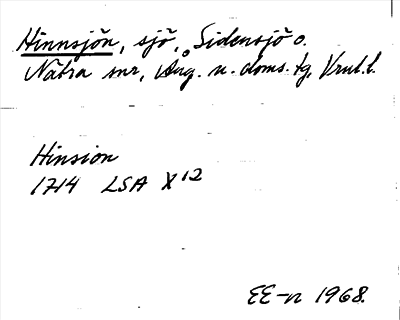 Hinnsjön, sjö, Sidensjö o.
Nätra snr, Ång. n. doms. tg, Vrnl. l.
Hinsion
1714 LSA X12
EE-n 1968.